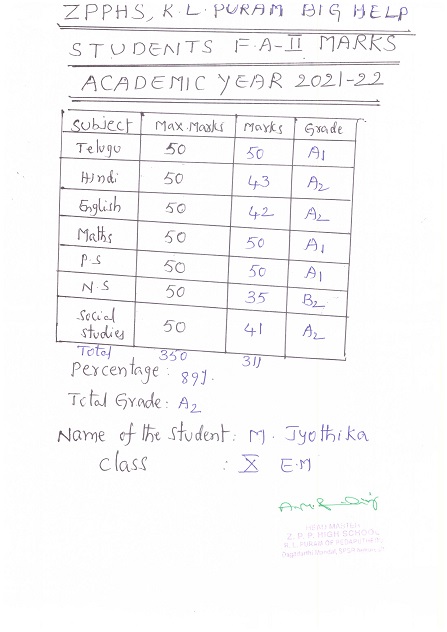 ZPPHS, K.L. PURAM BIG HELP
STUDENTS F.A-II MARKS
ACADEMIC YEAR 2021-22
Subject Max.Marks Marks Grade
Telugu 50 50 A1
Hindi 50 43 A2
English 50 42 A2
Maths 50 50 A1
P.S 50 50 A1
N.S 50 35 B2
Social studies 50 41 A2
Total 350 311
Percentage: 89%.
Total Grade: A2
Name of the student: M. Jyothika
class : X E.M
HEAD MASTER
Z. P. P. HIGH SCHOOL